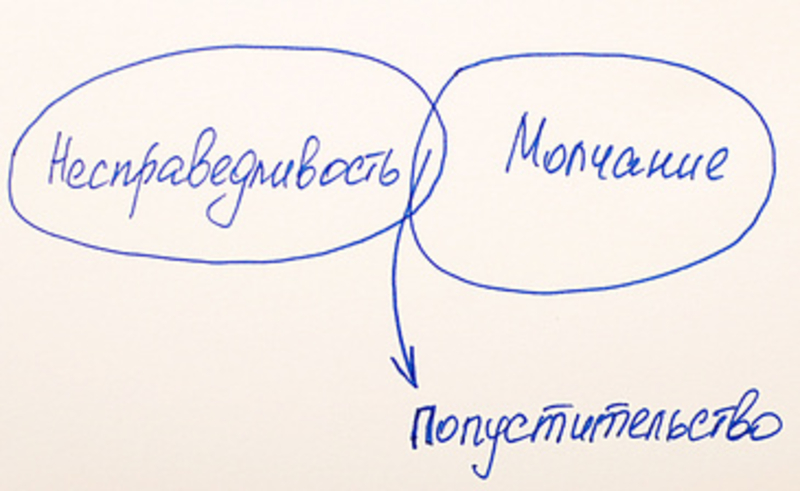 Несправедливость
Молчание
Попустительство